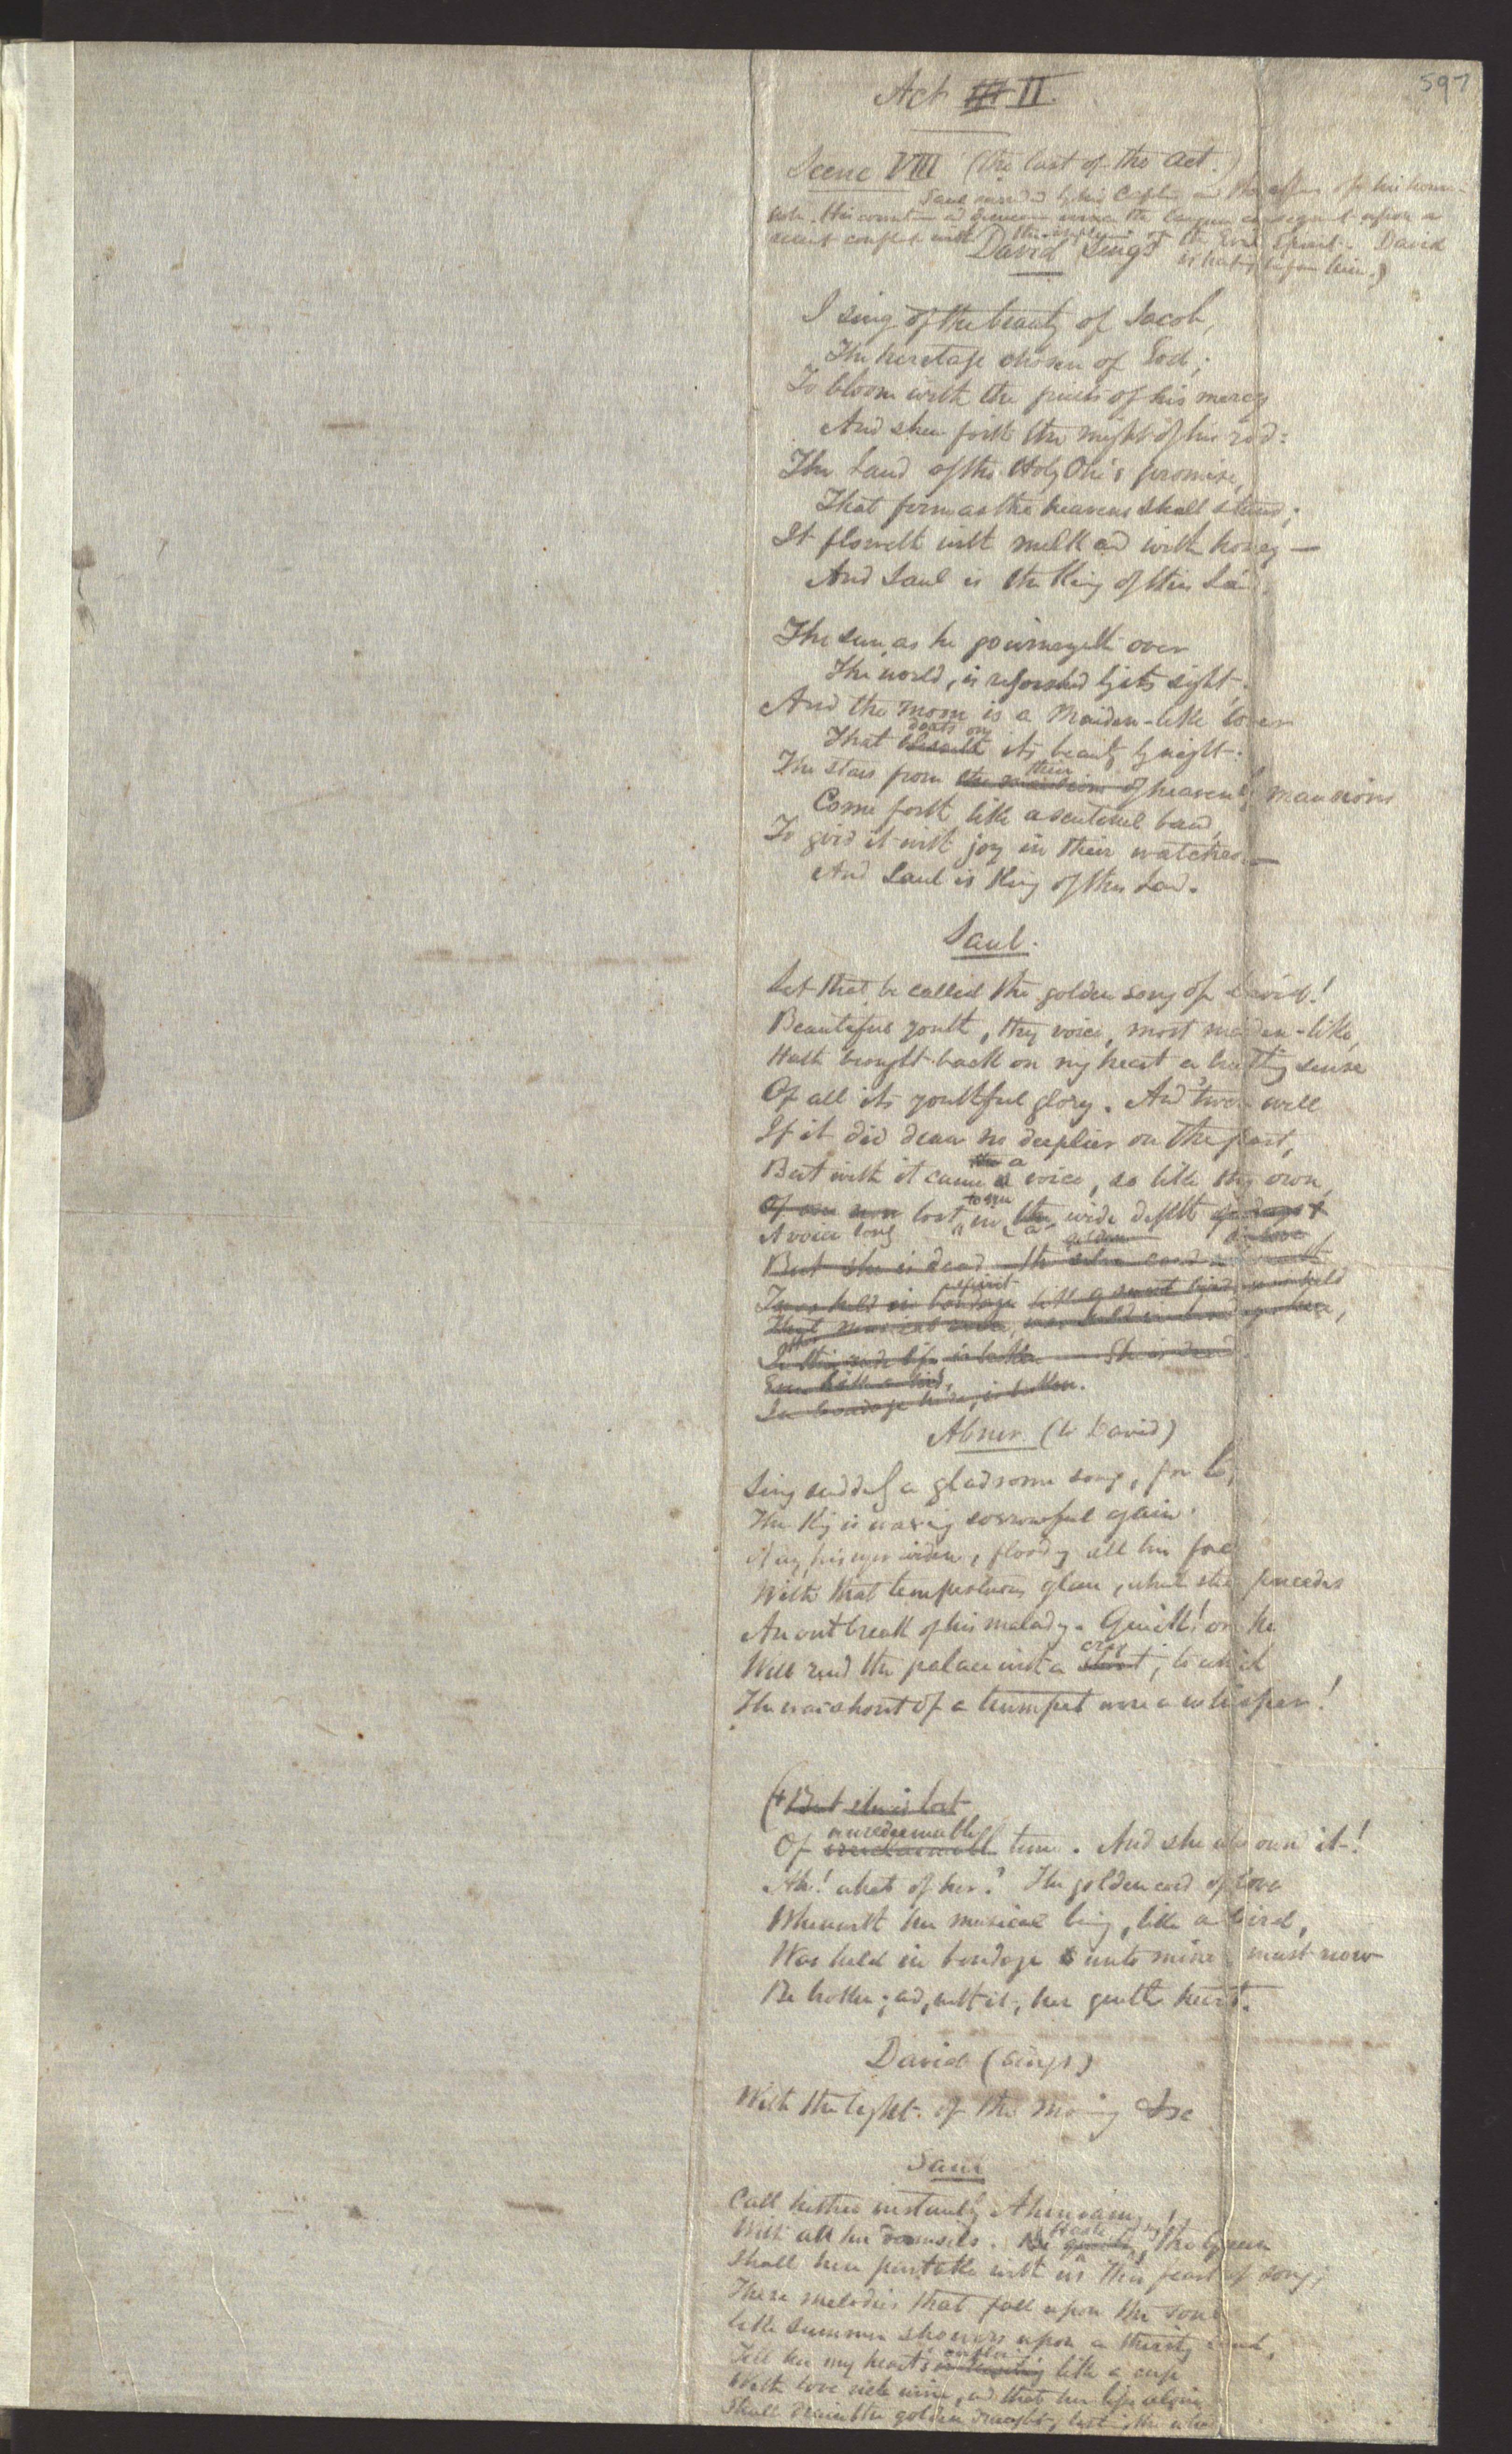 597
Act III II.
Scene VIII (the last of the act.)
Saul by his and the of his house-
hold. His the languor consequent upon a
recent conflict with the of the Evil Spirit. David
is before him.)
David Sings
I sing of the beauty of Jacob,
The heretage chosen of God;
To bloom with the fruits of his mercy
And shew forth the might of his rod:
The Land of the Holy One's promise,
That firm as the heavens shall stand;
It floweth with milk and with honey—
And Saul is the King of this Land.
The sun, as he journeyeth over
The world, is refreshed by its sight;
And the moon is a Maiden-like lover
doats on
That its beauty by night.
their
The stars from the mansions of heavenly mansions
Come forth like a sentinel band,
To gird it with joy in their watches—
And Saul is King of this Land.
Saul.
Let that be called the golden song of David!
Beautiful youth, thy voice, most maiden-like,
Hath brought back on my heart a sense
Of all its youthful glory. And 'twere well
If it did draw no deeplier on the past,
the a
But with it came a voice, so like thy own,
to me
Of one now lost in the wide depth of days +
A voice long a golden of love
But she is dead the silver cord
spirit
Twas held in bondage like a sweet bird
That musical, was held in bondage here,
In this rude life, is broken She is dead.
Even like a bird,
In bondage here, is broken.
Abner. (to David)
Sing suddenly a gladsome song, for lo,
The King is waxing sorrowful again.
Nay, his eyes widen, flooding all his face
With that tempestuous glare, which still precedes
An outbreak of his malady. Quick! or he
cry
Will rend the palace with a shout; to which
The war shout of a trumpet were a whisper!
(+ But she is lost
unredeemable
Of time. And she who own'd it!
Ah! what of her? The golden cord of love
Wherewith her musical being, like a bird,
Was held in bondage unto mine, must now
Be broken; and, with it, her gentle heart.
David (sings)
With the light of the morning &c
Saul
Call hither instantly Ahinoam,
Haste
With all her damsels. Be quick, the Queen
Shall here partake with us this feast of song;
These melodies that fall upon the soul
Like summer showers upon a thirsty land,
Tell her my heart's like a cup
With love rich wine, and that her lips alone
Shall drain the golden draught, lest, the